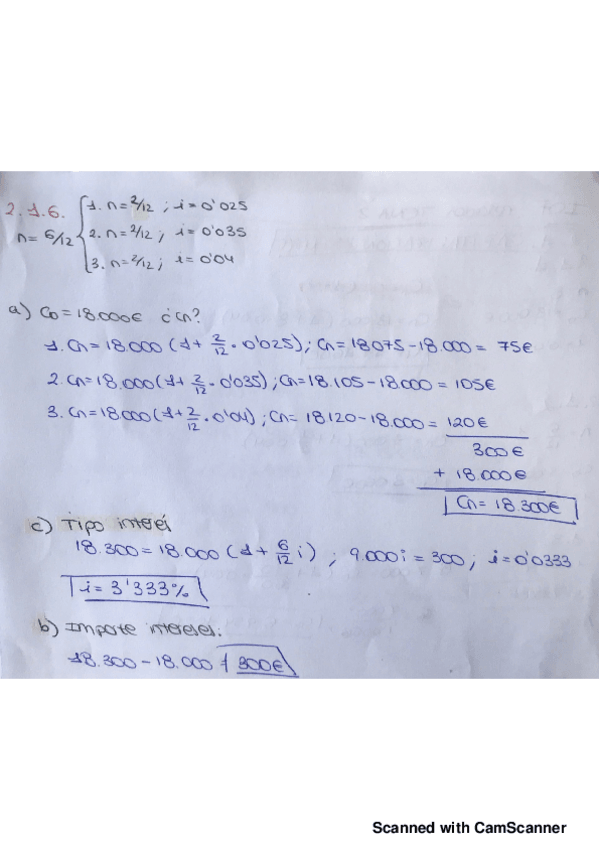 2.1.6.
n = 6/12
1. n = 2/12 ; i = 0'025
2. n = 2/12 ; i = 0'035
3. n = 2/12 ; i = 0'04
a) Co = 18.000€ ¿Cn?
1. Cn = 18.000 (1 + 2/12 · 0'025) ; Cn = 18075 - 18.000 = 75€
2. Cn = 18.000 (1 + 2/12 · 0'035) ; Cn = 18.105 - 18.000 = 105€
3. Cn = 18.000 (1 + 2/12 · 0'04) ; Cn = 18120 - 18.000 = 120€
300€
+ 18.000€
Cn = 18.300€
c) Tipo interés
18.300 = 18.000 (1 + 6/12 i) ; 9.000i = 300 ; i = 0'0333
i = 3'333%
b) Importe intereses.
18.300 - 18.000 = 300€
Scanned with CamScanner